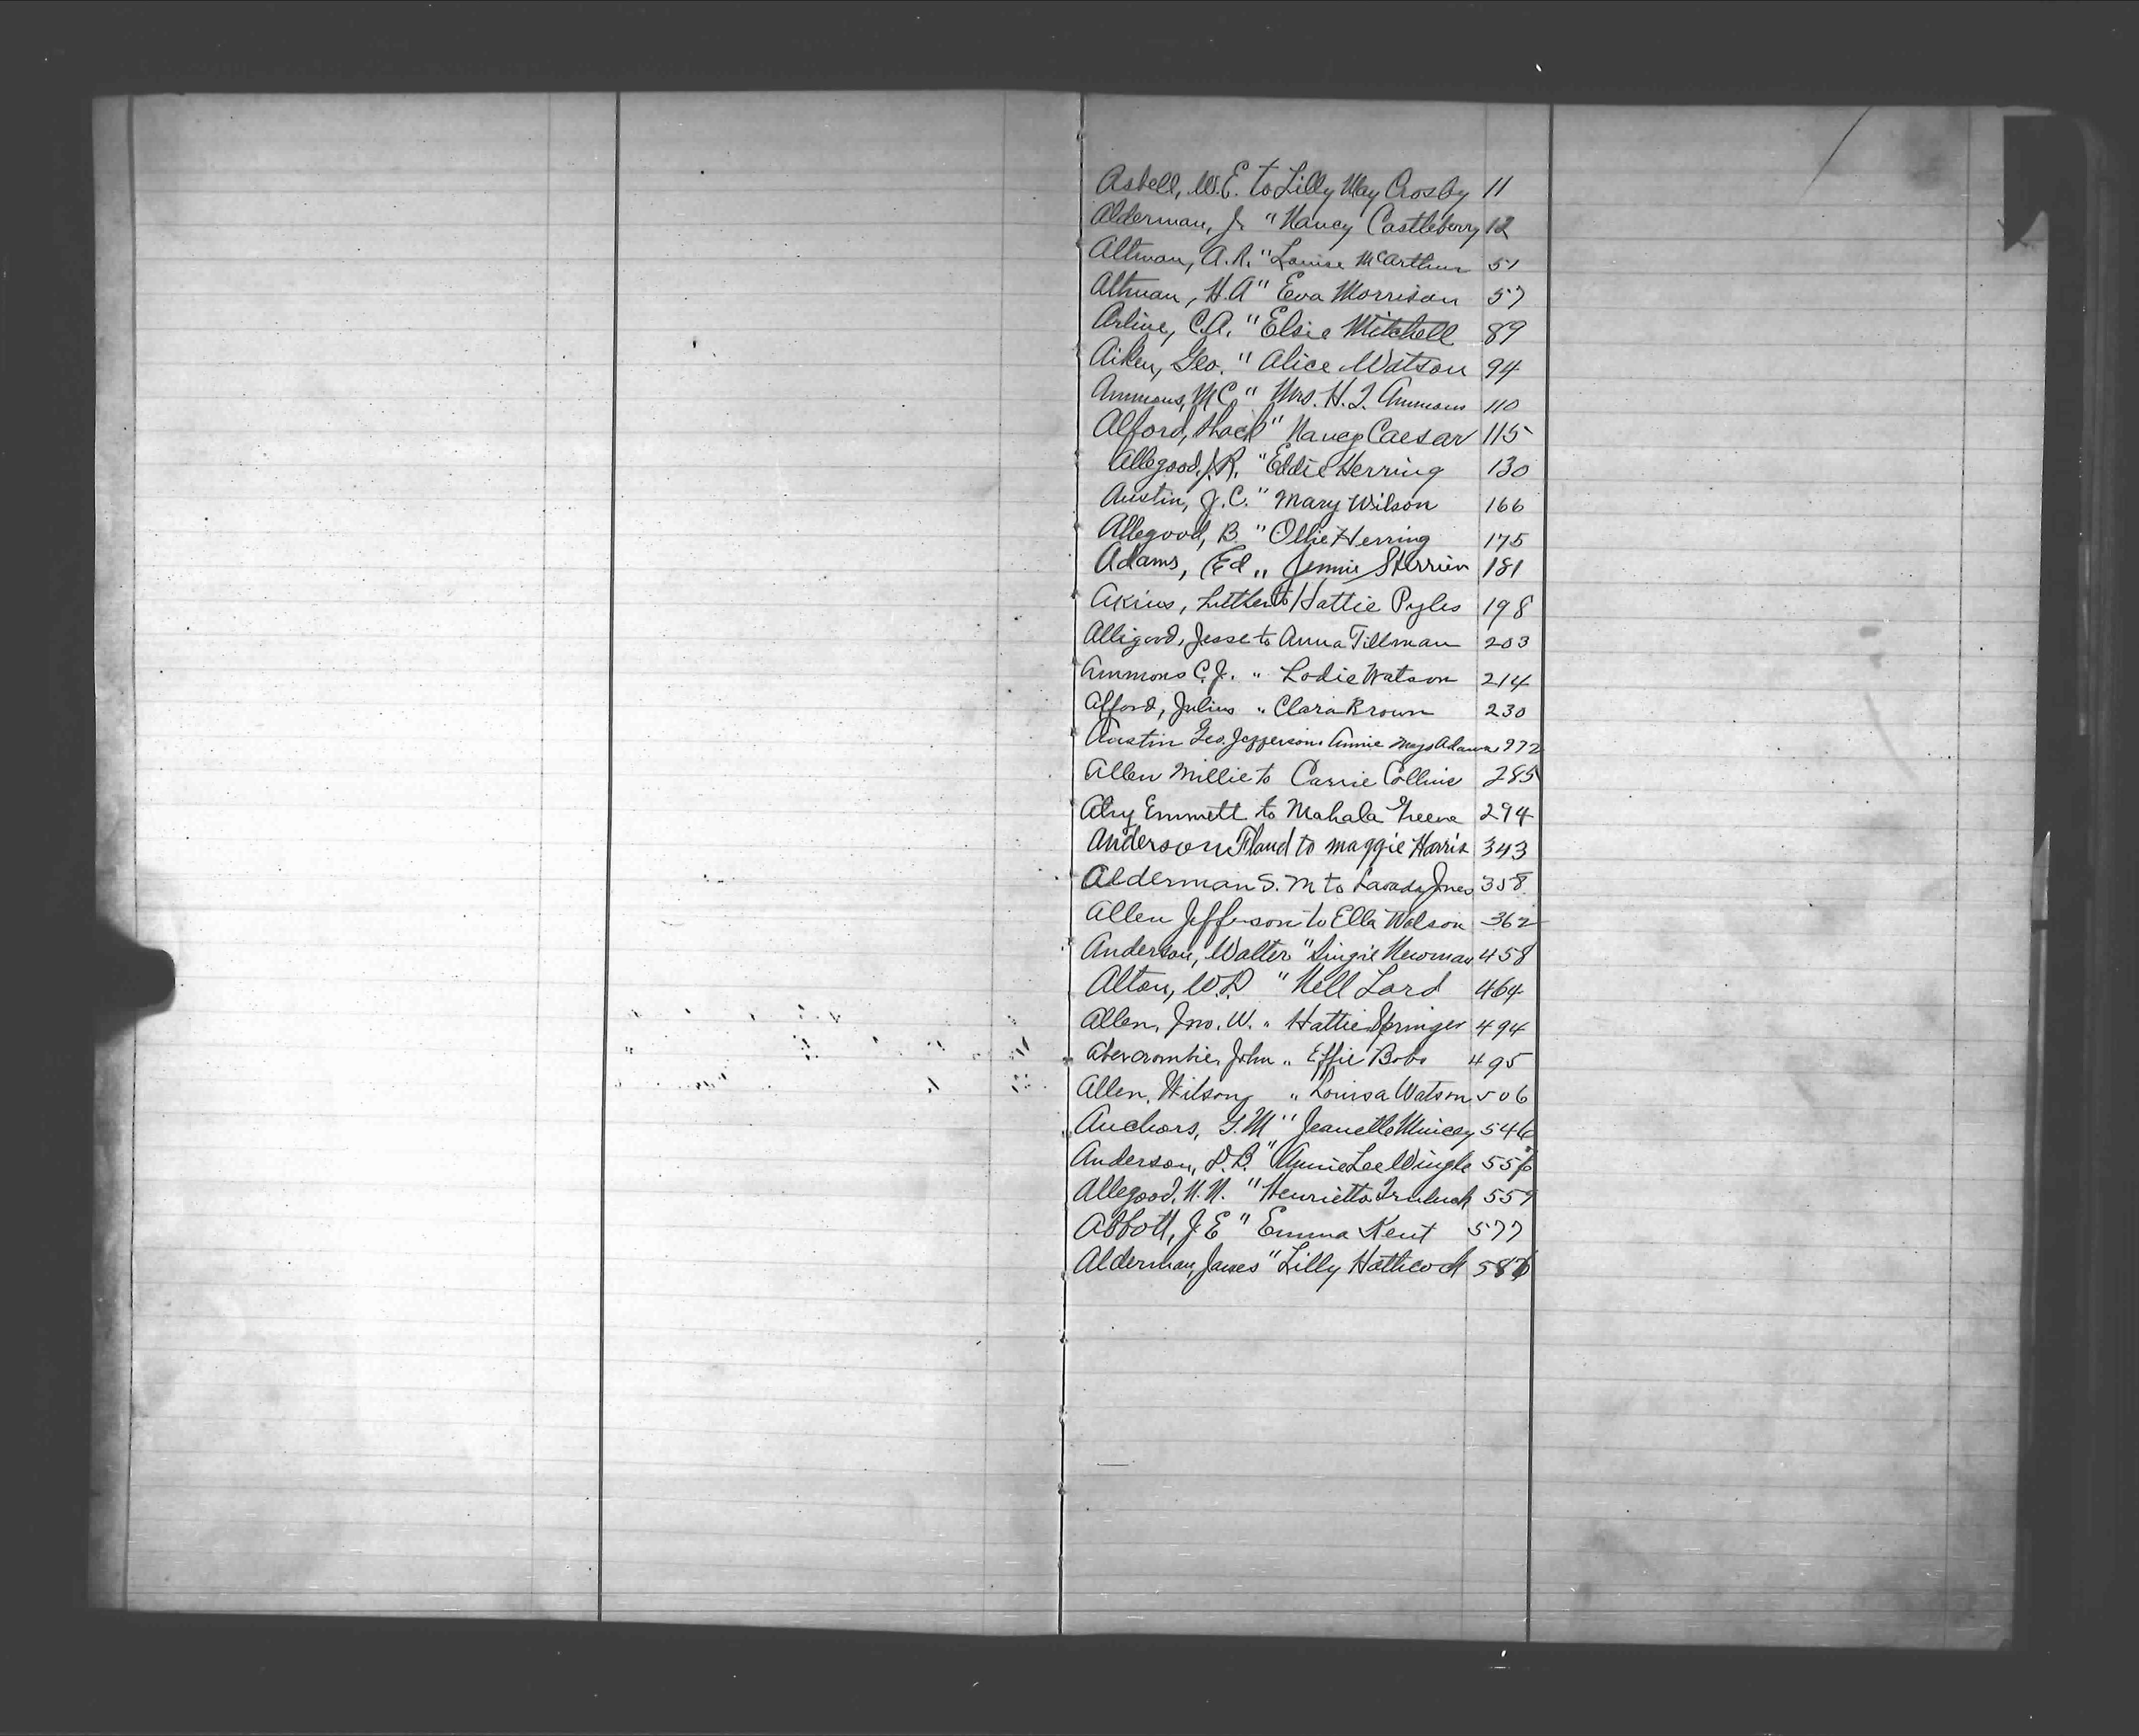 Asbell, W.E. to Lilly May Crosby 11
Alderman, J. " Nancy Castleberry 12
Altman, A.R. " Louise McArthur 51
Altman, H.A " Eva Morrison 57
Arline, C.A. " Elsie Mitchell 89
Aiken, Geo. " Alice Watson 94
Ammons, M C. " Mrs. H. J. Ammons 110
Alford, " Nancy Caesar 115
Allegood, J.R. " Eddie Herring 130
Austin, J.C. " Mary Wilson 166
Allegood, B. " Ollie Herring 175
Adams, Ed " Jennie 181
Akins, Luther to Hattie Pyles 198
Alligood, Jesse to Anna Tillman 203
Ammons C.J. " Lodie Watson 214
Afford, Julius " Clara Brown 230
Austin Geo. Jefferson " Annie Mays Adams 272
Allen Millie to Carrie Collins 285
Alry Emmett to Mahala Greene 294
Anderson to Maggie Harris 343
Alderman S. M to Jones 358
Allen Jefferson to Ella Wolson 362
Anderson, Walter " Newman 458
Alton, W.D. " Nell Lord 464
Allen, Jno. W. " Hattie Springer 494
Abercrombie, John " Effie Bobo 495
Allen, Wilson " Louisa Watson 506
Anchors, J.M " Jeanette Mincey 546
Anderson, D.B. " Annie Lee Wingle
Allegood, N.N. " Henrietta Truluck 559
Abbott, J.E " Emma Kent 577
Alderman, James " Lilly Hathcock